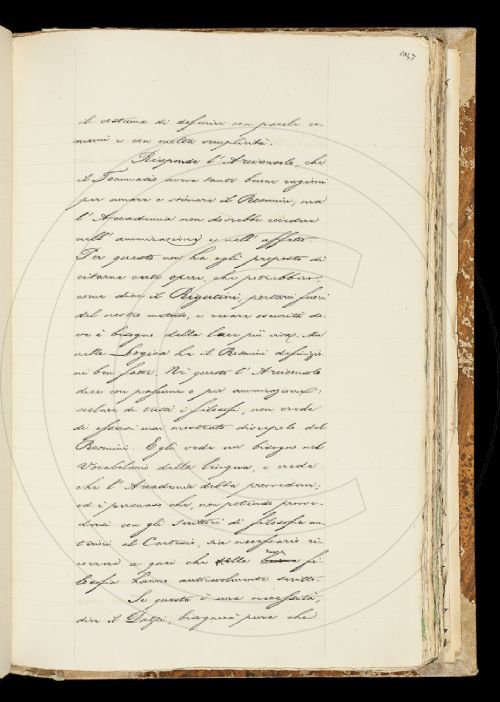 1037
il costume di definire con parole co-
muni e con molta semplicità.
Risponde l'Arciconsolo, che
il Tommaseo aveva tante buone ragioni
per amare e stimare il Rosmini, ma
l'Accademia non dovrebbe eccedere
nell'ammirazione e nell'affetto.
Per questo non ha egli proposto di
citarne certe opere, che potrebbero,
come dice il Rigutini, portarci fuori
del nostro metodo, e recare oscurità do-
ve è bisogno della luce più viva. Ma
nella Logica ha il Rosmini definizio-
ni ben fatte. Nè questo l'Arciconsolo
dice con passione o per ammirazione;
scolare di tutti i filosofi, non crede
di essersi mai mostrato discepolo del
Rosmini. Egli vede un bisogno nel
Vocabolario della lingua, e crede
che l'Accademia debba provvedervi;
ed è persuaso che, non potendo provve-
dersi con gli scrittori di filosofia an-
teriori al Cartesio, sia necessario ri-
correre a quei che della nuova fi-
losofia hanno ultimamente scritto.
Se questa è una necessità,
dice il Dazzi, bisognerà pure che